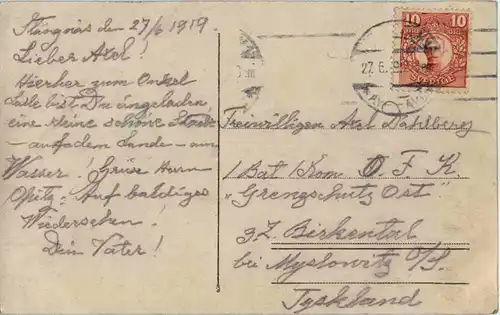 Stängnäs den 27/6 1919
Lieber Axel!
Hierher zum Onkel
Calle bist Du eingeladen,
eine kleine schöne Stadt
auf dem Lande - am
Wasser! Grüss Herrn
Opitz. Auf baldiges
Wiedersehen!
Dein Vater!
10 10
SVERIGE
27.6.
Freiwilligen Axel Dahlberg
1 Bat 1 Kom O.F.K.
"Grenzschutz Ost"
z.Z. Birkental
bei Myslowitz O/S.
Tyskland